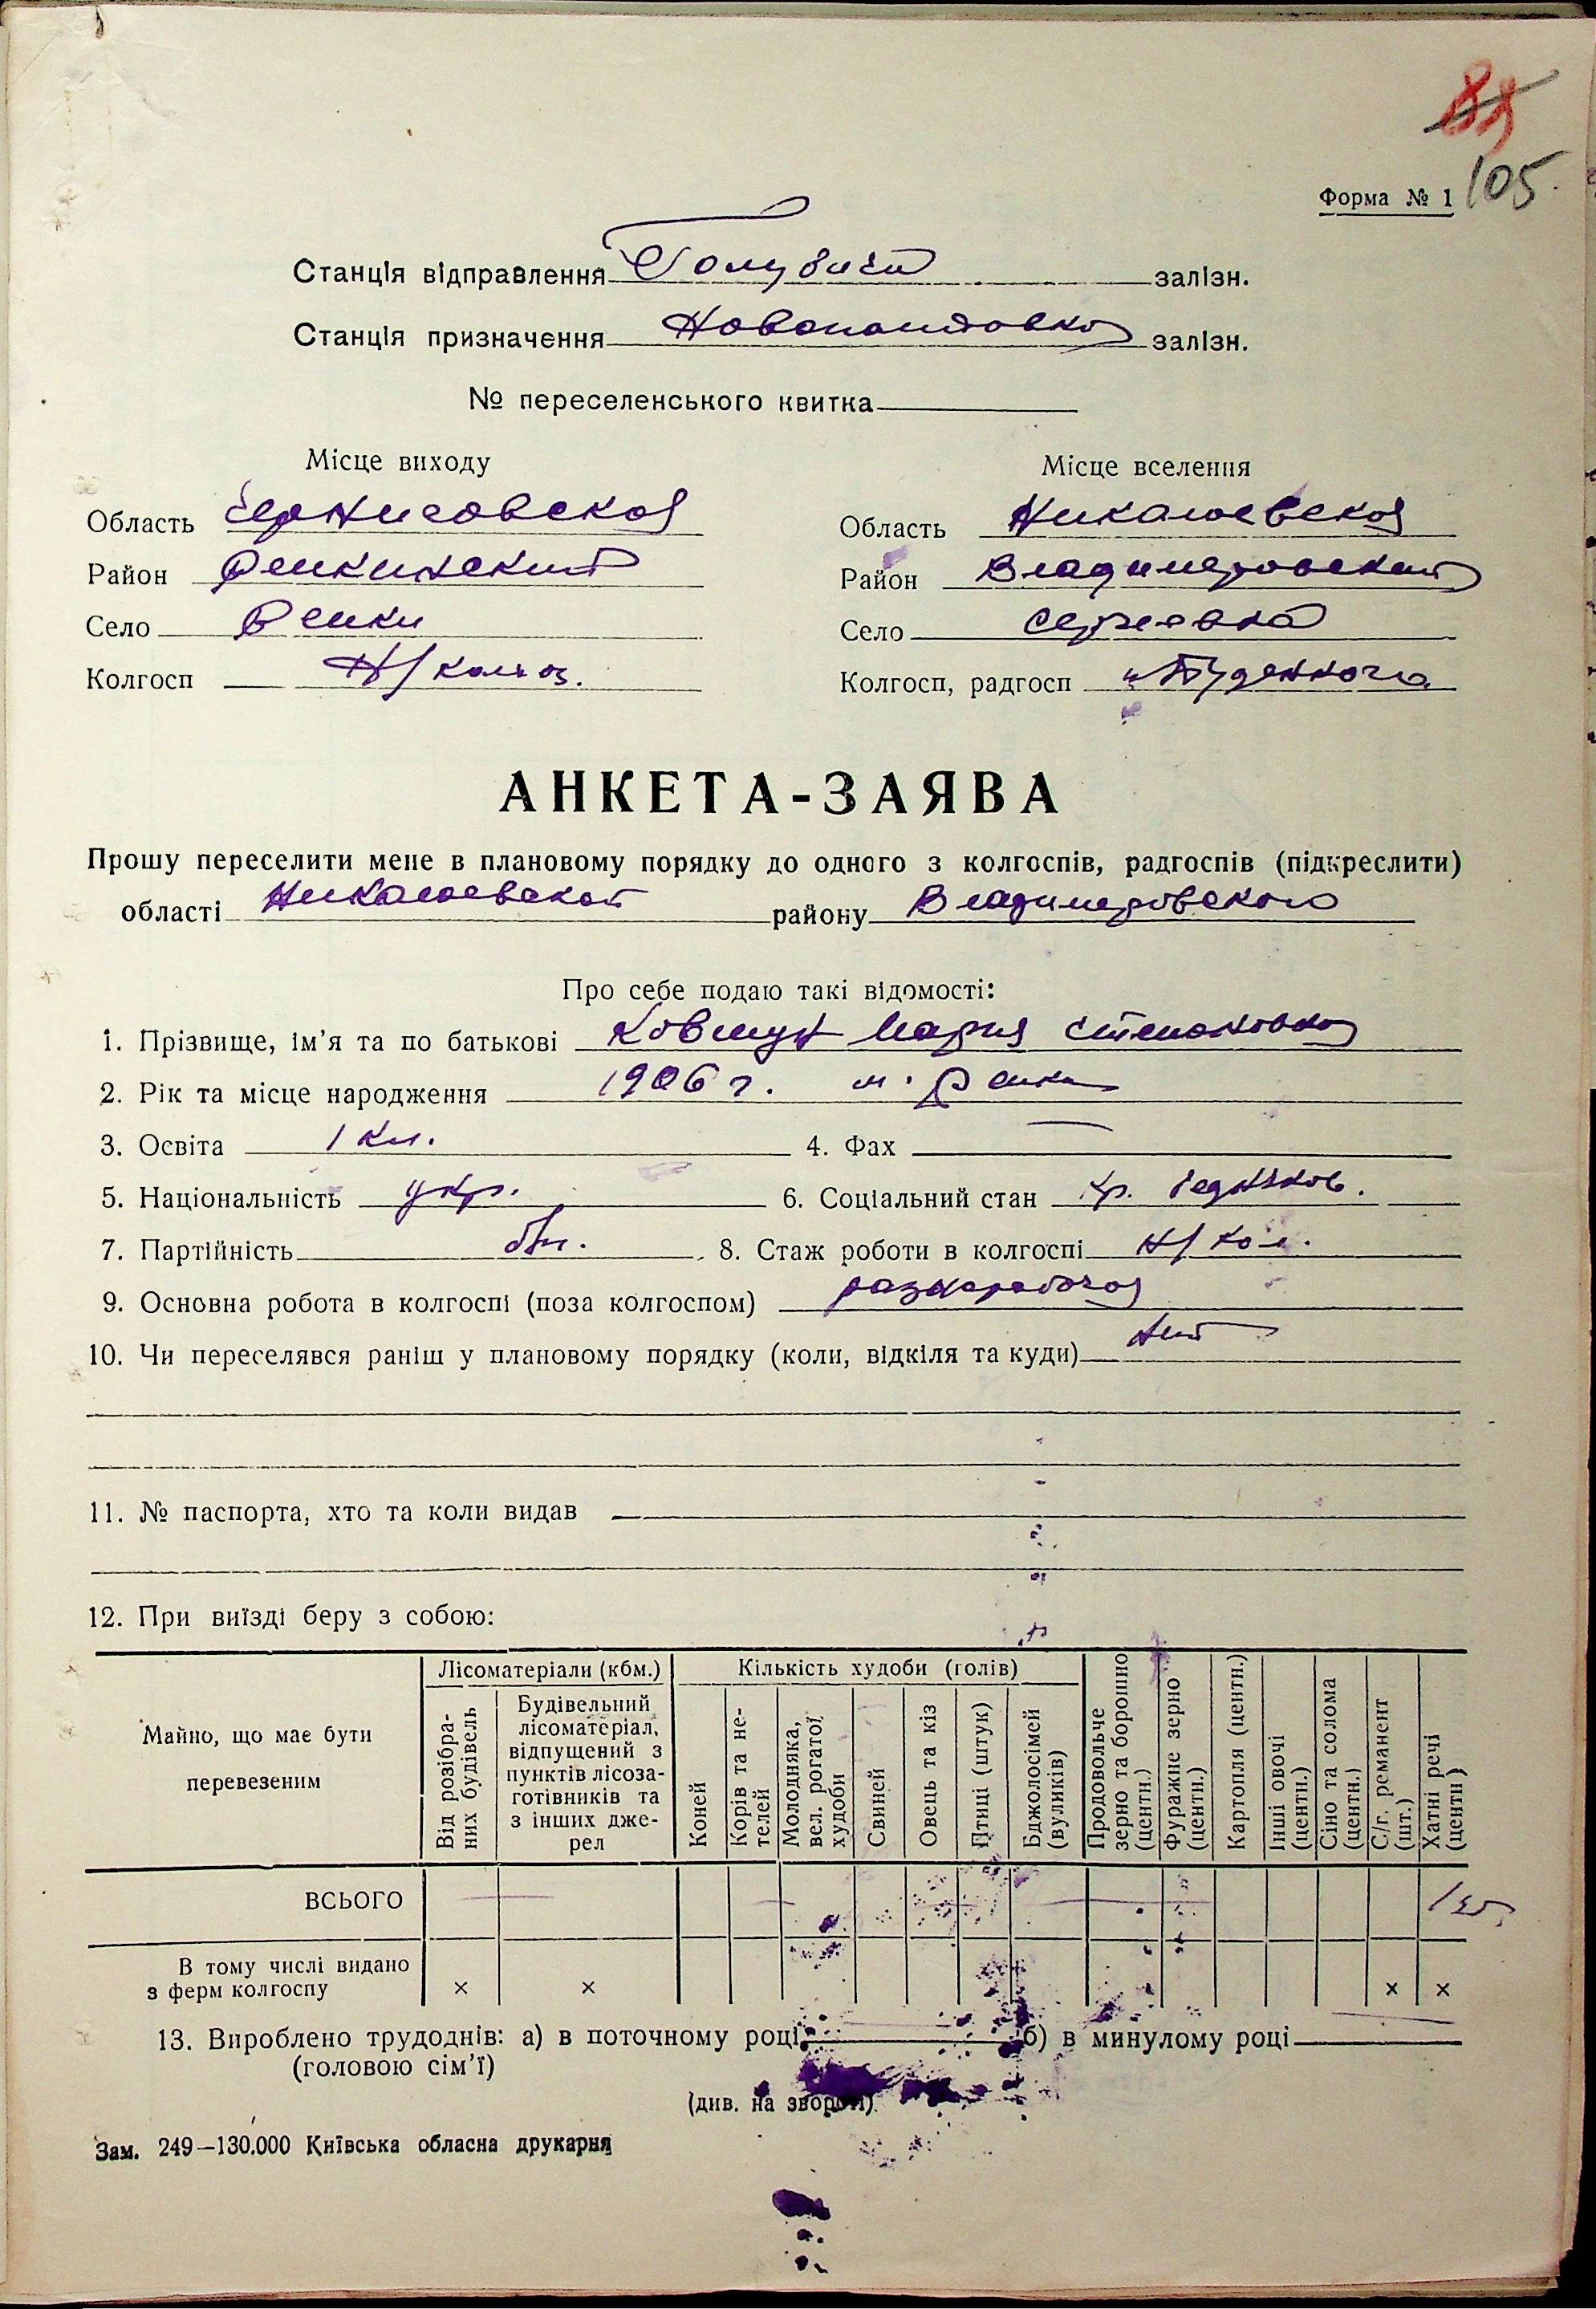 88
105
Форма № 1
Станція відправлення Голубичи залізн.
Станція призначення Новополтавка залізн.
№ переселенського квитка
Місце виходу
Місце вселення
Область Черниговская
Область Николаевская
Район Репкинский
Район Владимировский
Село Репки
Село Сергеевка
Колгосп Н/колхоз.
Колгосп, радгосп
АНКЕТА-ЗАЯВА
Прошу переселити мене в плановому порядку до одного з колгоспів, радгоспів (підкреслити)
області Николаевской району Владимировского
Про себе подаю такі відомості:
1. Прізвище, ім'я та по батькові Ковтун Мария Степановна
2. Рік та місце народження 1906 г. м. Репки
3. Освіта 1 кл. 4. Фах —
5. Національність укр. 6. Соціальний стан кр. бедняков.
7. Партійність б/п. 8. Стаж роботи в колгоспі н/кол.
9. Основна робота в колгоспі (поза колгоспом) разнорабочая
10. Чи переселявся раніш у плановому порядку (коли, відкіля та куди) нет
11. № паспорта, хто та коли видав
12. При виїзді беру з собою:
Майно, що має бути перевезеним
Лісоматеріали (кбм.)
Кількість худоби (голів)
Від розібра-
них будівель
Будівельний
лісоматеріал,
відпущений з
пунктів лісоза-
готівників та
з інших дже-
рел
Коней
Корів та не-
телей
Молодняка,
вел. рогатої
худоби
Свиней
Овець та кіз
Птиці (штук)
Бджолосімей
(вуликів)
Продовольче
зерно та борошно
(центн.)
Фуражне зерно
(центн.)
Картопля (центн.)
Інші овочі
(центн.)
Сіно та солома
(центн.)
С/г. реманент
(шт.)
Хатні речі
(центн)
ВСЬОГО
В тому числі видано
з ферм колгоспу × × × ×
13. Вироблено трудоднів: а) в поточному році б) в минулому році
(головою сім'ї)
(див. на звороті)
Зам. 249—130.000 Київська обласна друкарня